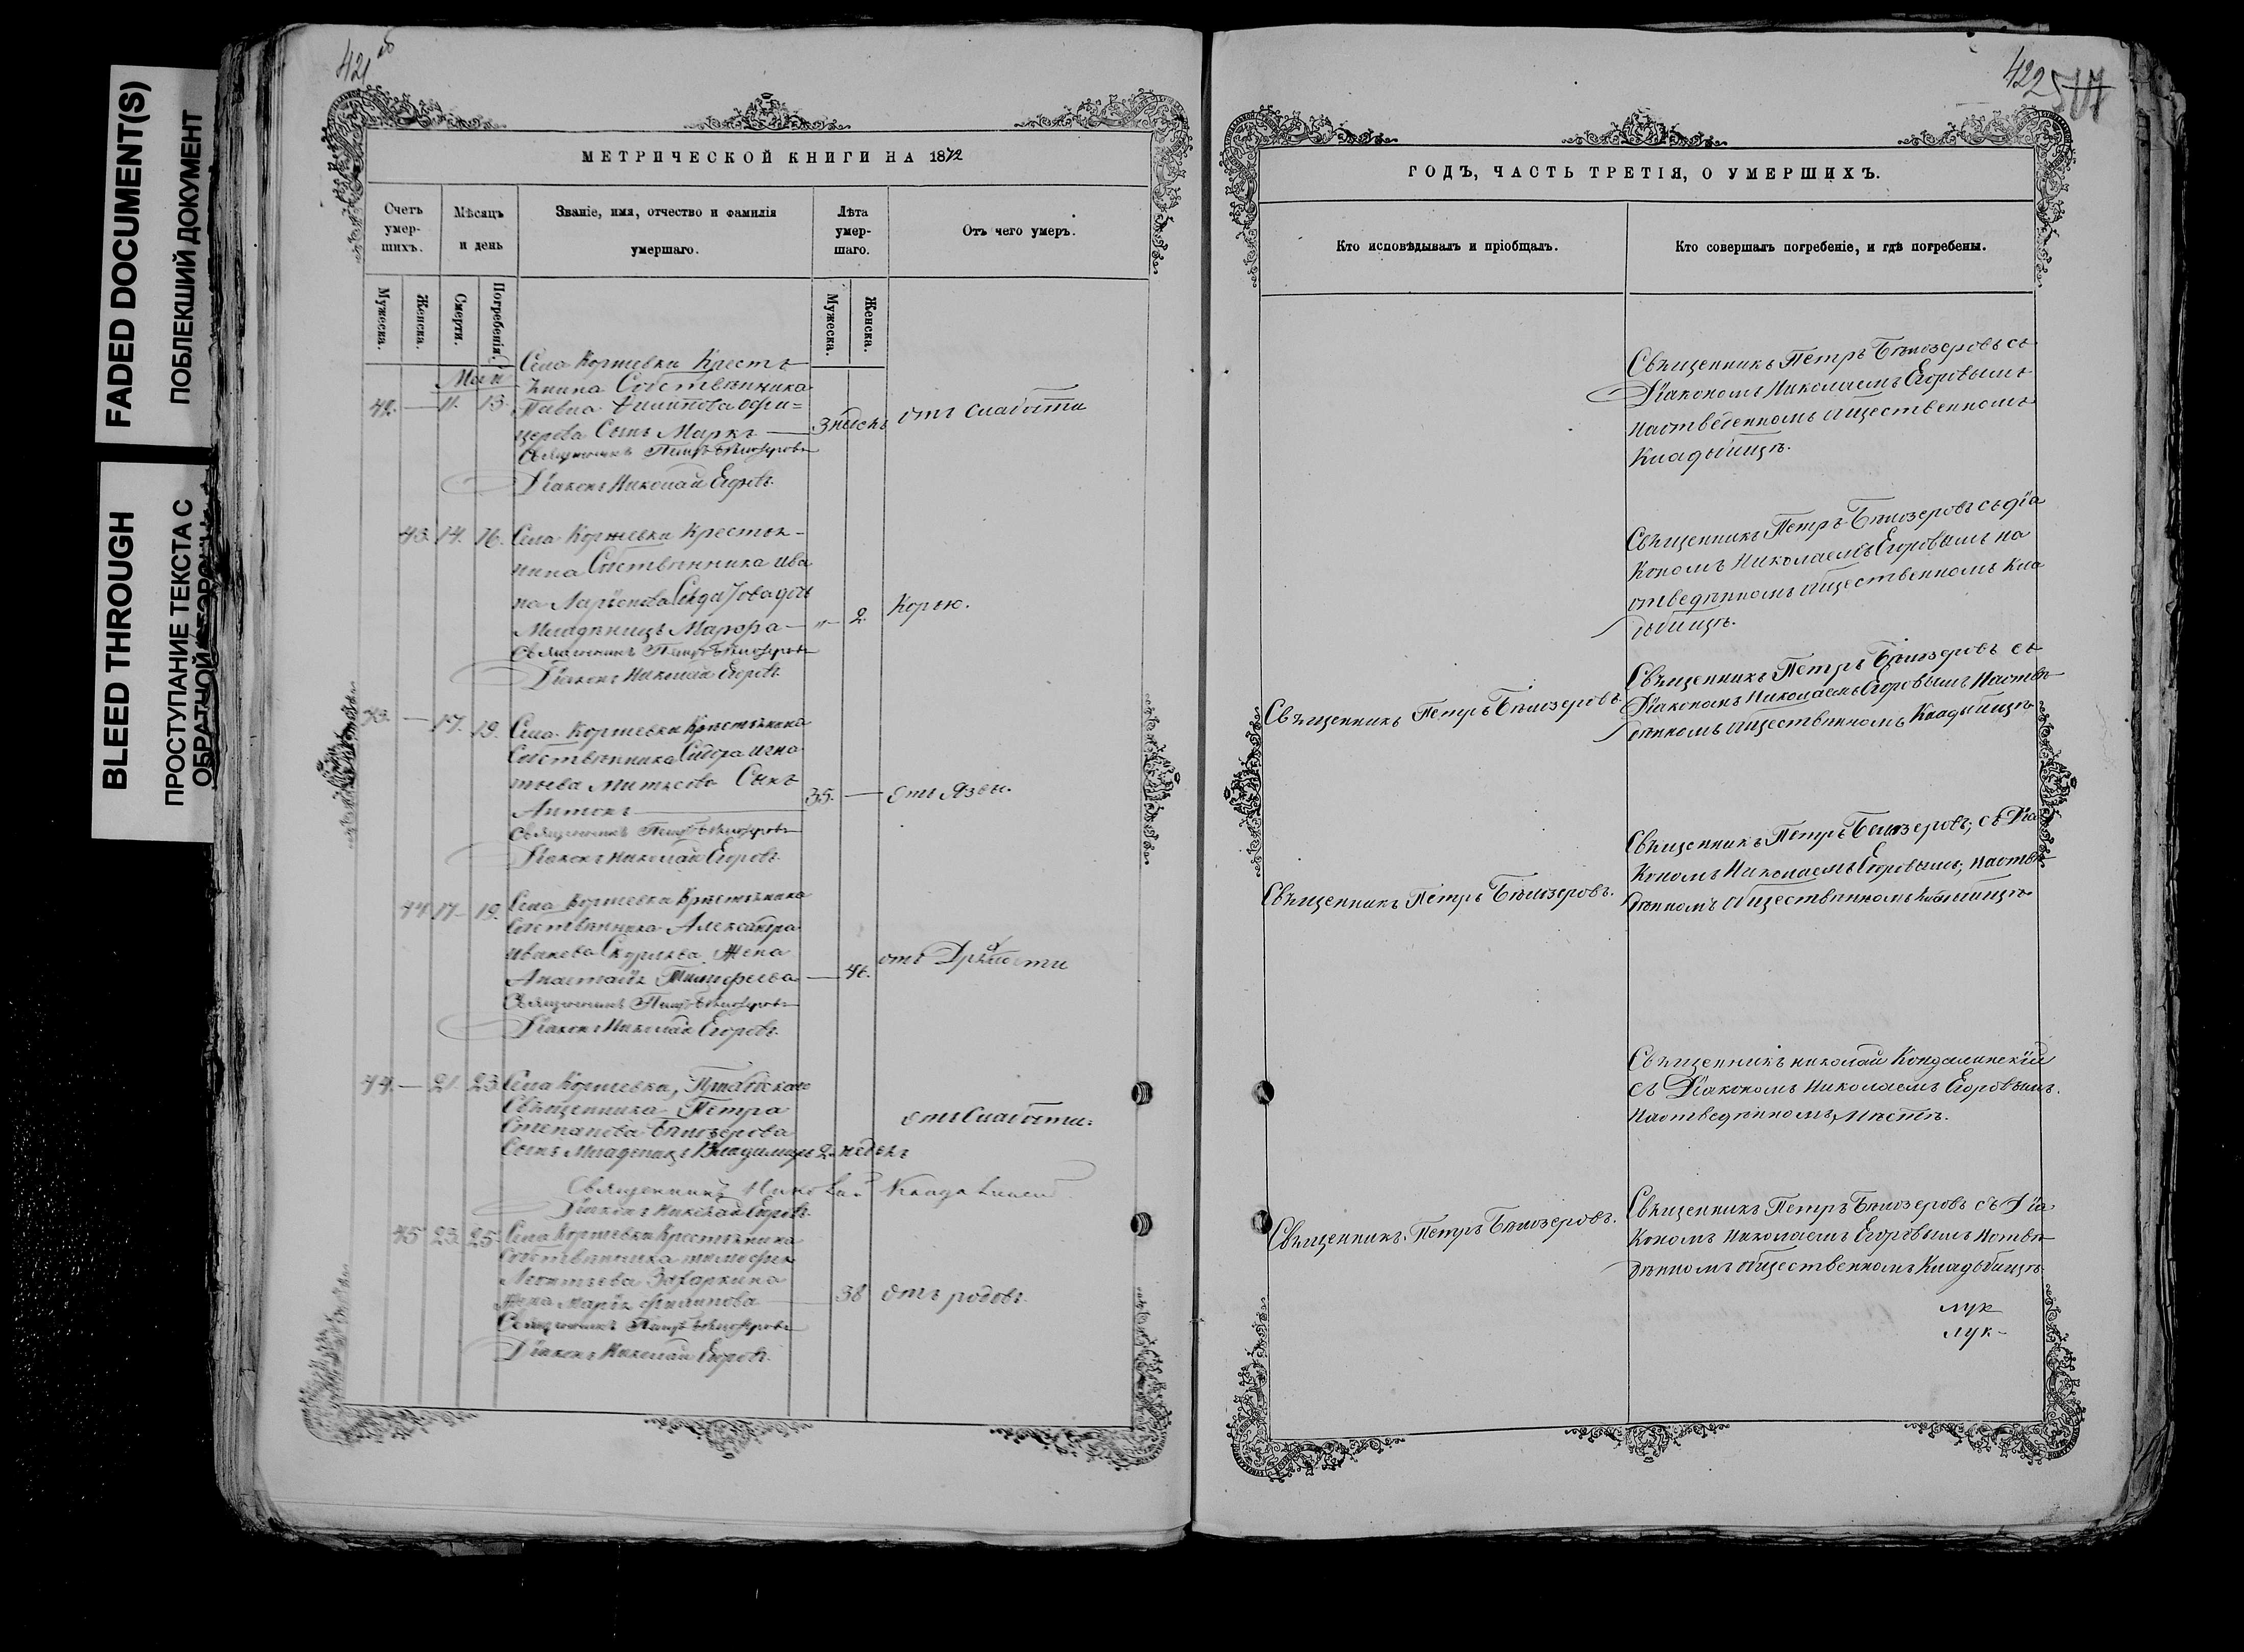 FADED DOCUMENT(S)
ПОБЛЕКШИЙ ДОКУМЕНТ
BLEED THROUGH
ПРОСТУПАНИЕ ТЕКСТА С
ОБРАТНОЙ
421 об
МЕТРИЧЕСКОЙ КНИГИ НА 1872
Счетъ умер-шихъ.
Мѣсяцъ и день
Званіе, имя, отчество и фамилія умершаго.
Лѣта умер-шаго.
Отъ чего умеръ.
Мужеска.
Женска.
Смерти.
Погребенія.
Мужеска.
Женска.
Маи
Села Коржевки Кресть
42. — 11. 13.
янина Собственника
Павла Филипова Офи=
церова Сынъ Маркъ — 3 недѣль отъ слабости
Священникъ Петръ Бѣлозеровъ
Діаконъ Николай Егоровъ.
43. 14. 16. Села Коржевки Крестья-
нина Собственника Ива
на Ларіонова
Младенецъ Марфа — „ — 2. Корью.
Священникъ Петръ Бѣлозеровъ
Діаконъ Николай Егоровъ.
43. — 17. 19. Села Коржевки Крестьянина
Собственника Сидора Игна
тьева Митясова Сынъ
Антонъ — 35. — отъ Язвы.
Священникъ Петръ Бѣлозеровъ
Діаконъ Николай Егоровъ.
44 17. 19. Села Коржевки Крестьянина
Собственника Александра
Иванова Жена
Анастасія Тимофеева — 46. отъ
Священникъ Петръ Бѣлозеровъ
Діаконъ Николай Егоровъ.
44. — 21. 23. Села Коржевки,
Священника Петра
Степанова Бѣлозерова
Сынъ Младенецъ Владимиръ 2. недѣль отъ Слабости.
Священникъ Николай
Діаконъ Николай Егоровъ.
45 23. 25. Села Коржевки Крестьянина
Собственника Тимофея
Леонтьева Захаркина
Жена Марія Филипова — 38 отъ родовъ.
Священникъ Петръ Бѣлозеровъ
Діаконъ Николай Егоровъ.
422
ГОДЪ, ЧАСТЬ ТРЕТІЯ, О УМЕРШИХЪ.
Кто исповѣдывалъ и пріобщалъ.
Кто совершалъ погребеніе, и гдѣ погребены.
Свѣщенникъ Петръ Бѣлозеровъ съ
Діакономъ Николаемъ Егоровымъ
наотведенномъ общественномъ
Кладбищѣ.
Свѣщенникъ Петръ Бѣлозеровъ съ діа
кономъ Николаемъ Егоровымъ на
отведѣнномъ общественномъ кла
дбищѣ.
Свѣщенникъ Петръ Бѣлозеровъ.
Свѣщенникъ Петръ Бѣлозеровъ съ
Діакономъ Николаемъ Егоровымъ Наотве
дѣнномъ общественномъ Кладбищѣ
Свѣщенникъ Петръ Бѣлозеровъ.
Свѣщенникъ Петръ Белозеровъ, съ Діа
кономъ Николаемъ Егоровымъ, наотве
дѣнномъ общественномъ кладбищѣ
Свѣщенникъ Николай
съ Діакономъ Николаемъ Егоровымъ.
Наотведѣнномъ Мѣстѣ.
Свѣщенникъ Петръ Бѣлозеровъ.
Свѣщенникъ Петръ Бѣлозеровъ съ Діа
кономъ Николаемъ Егоровымъ Нотве
дѣнномъ общественномъ Кладбищѣ
лук
лук-